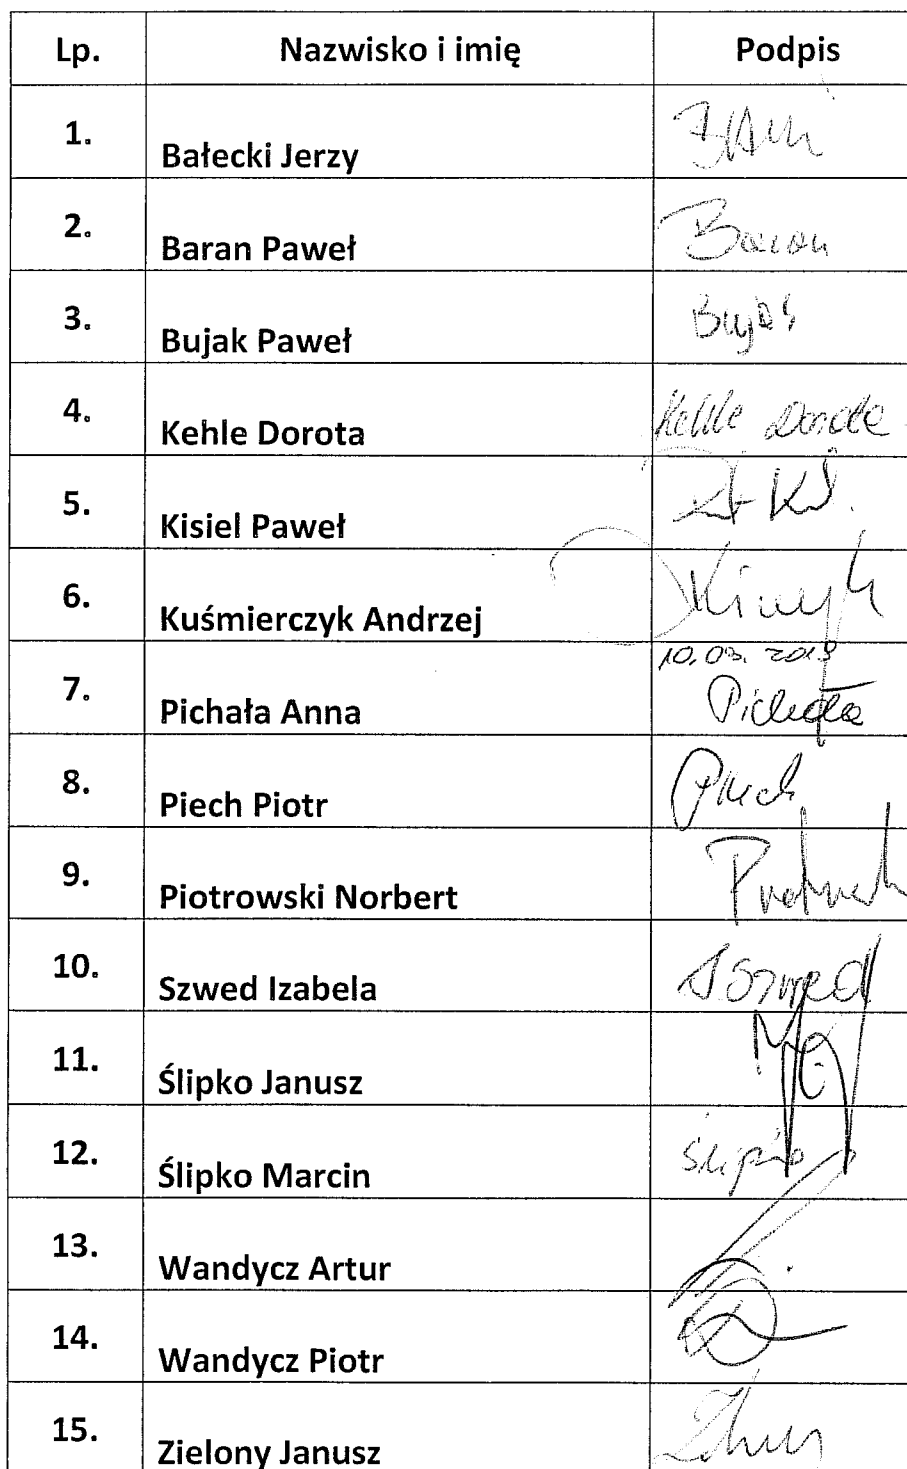 Lp. Nazwisko i imię Podpis
1. Bałecki Jerzy
2. Baran Paweł Baran
3. Bujak Paweł Bujak
4. Kehle Dorota Kehle Dorota
5. Kisiel Paweł
6. Kuśmierczyk Andrzej
7. Pichała Anna 10.03. 2019 Pichała
8. Piech Piotr Piech
9. Piotrowski Norbert
10. Szwed Izabela I Szwed
11. Ślipko Janusz
12. Ślipko Marcin Ślipko
13. Wandycz Artur
14. Wandycz Piotr
15. Zielony Janusz